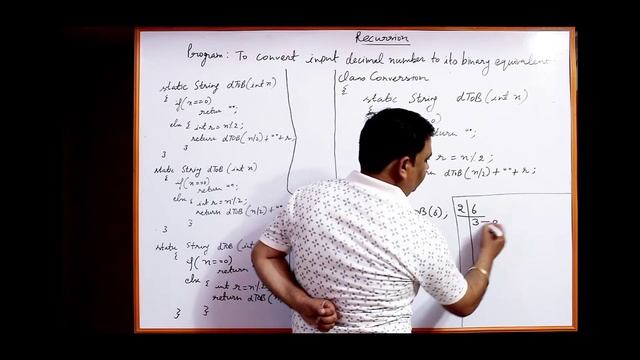 Recurrsion
Program: To convert input decimal number to its binary equivalent
static String dToB(int n)
{ if(n==0)
return "";
else { int r = n%2;
return dToB(n/2)+""+r;
}
}
static String dToB(int n)
{ if(n==0)
return "";
else { int r = n%2;
return dToB(n/2)+""
}
}
static String dToB (int
{ if(n==0)
return
else { int r = n%2
return dToB(n/
} }
class Conversion
{
static String dToB(int n)
{
turn "";
r = n%2;
dToB(n/2)+""+r;
B(6);
2 6
3 –